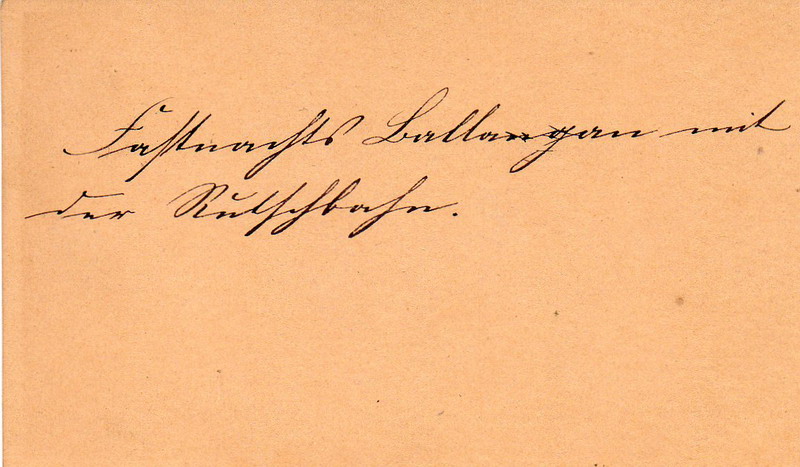 Fastnachts mit
der Rutschbahn.